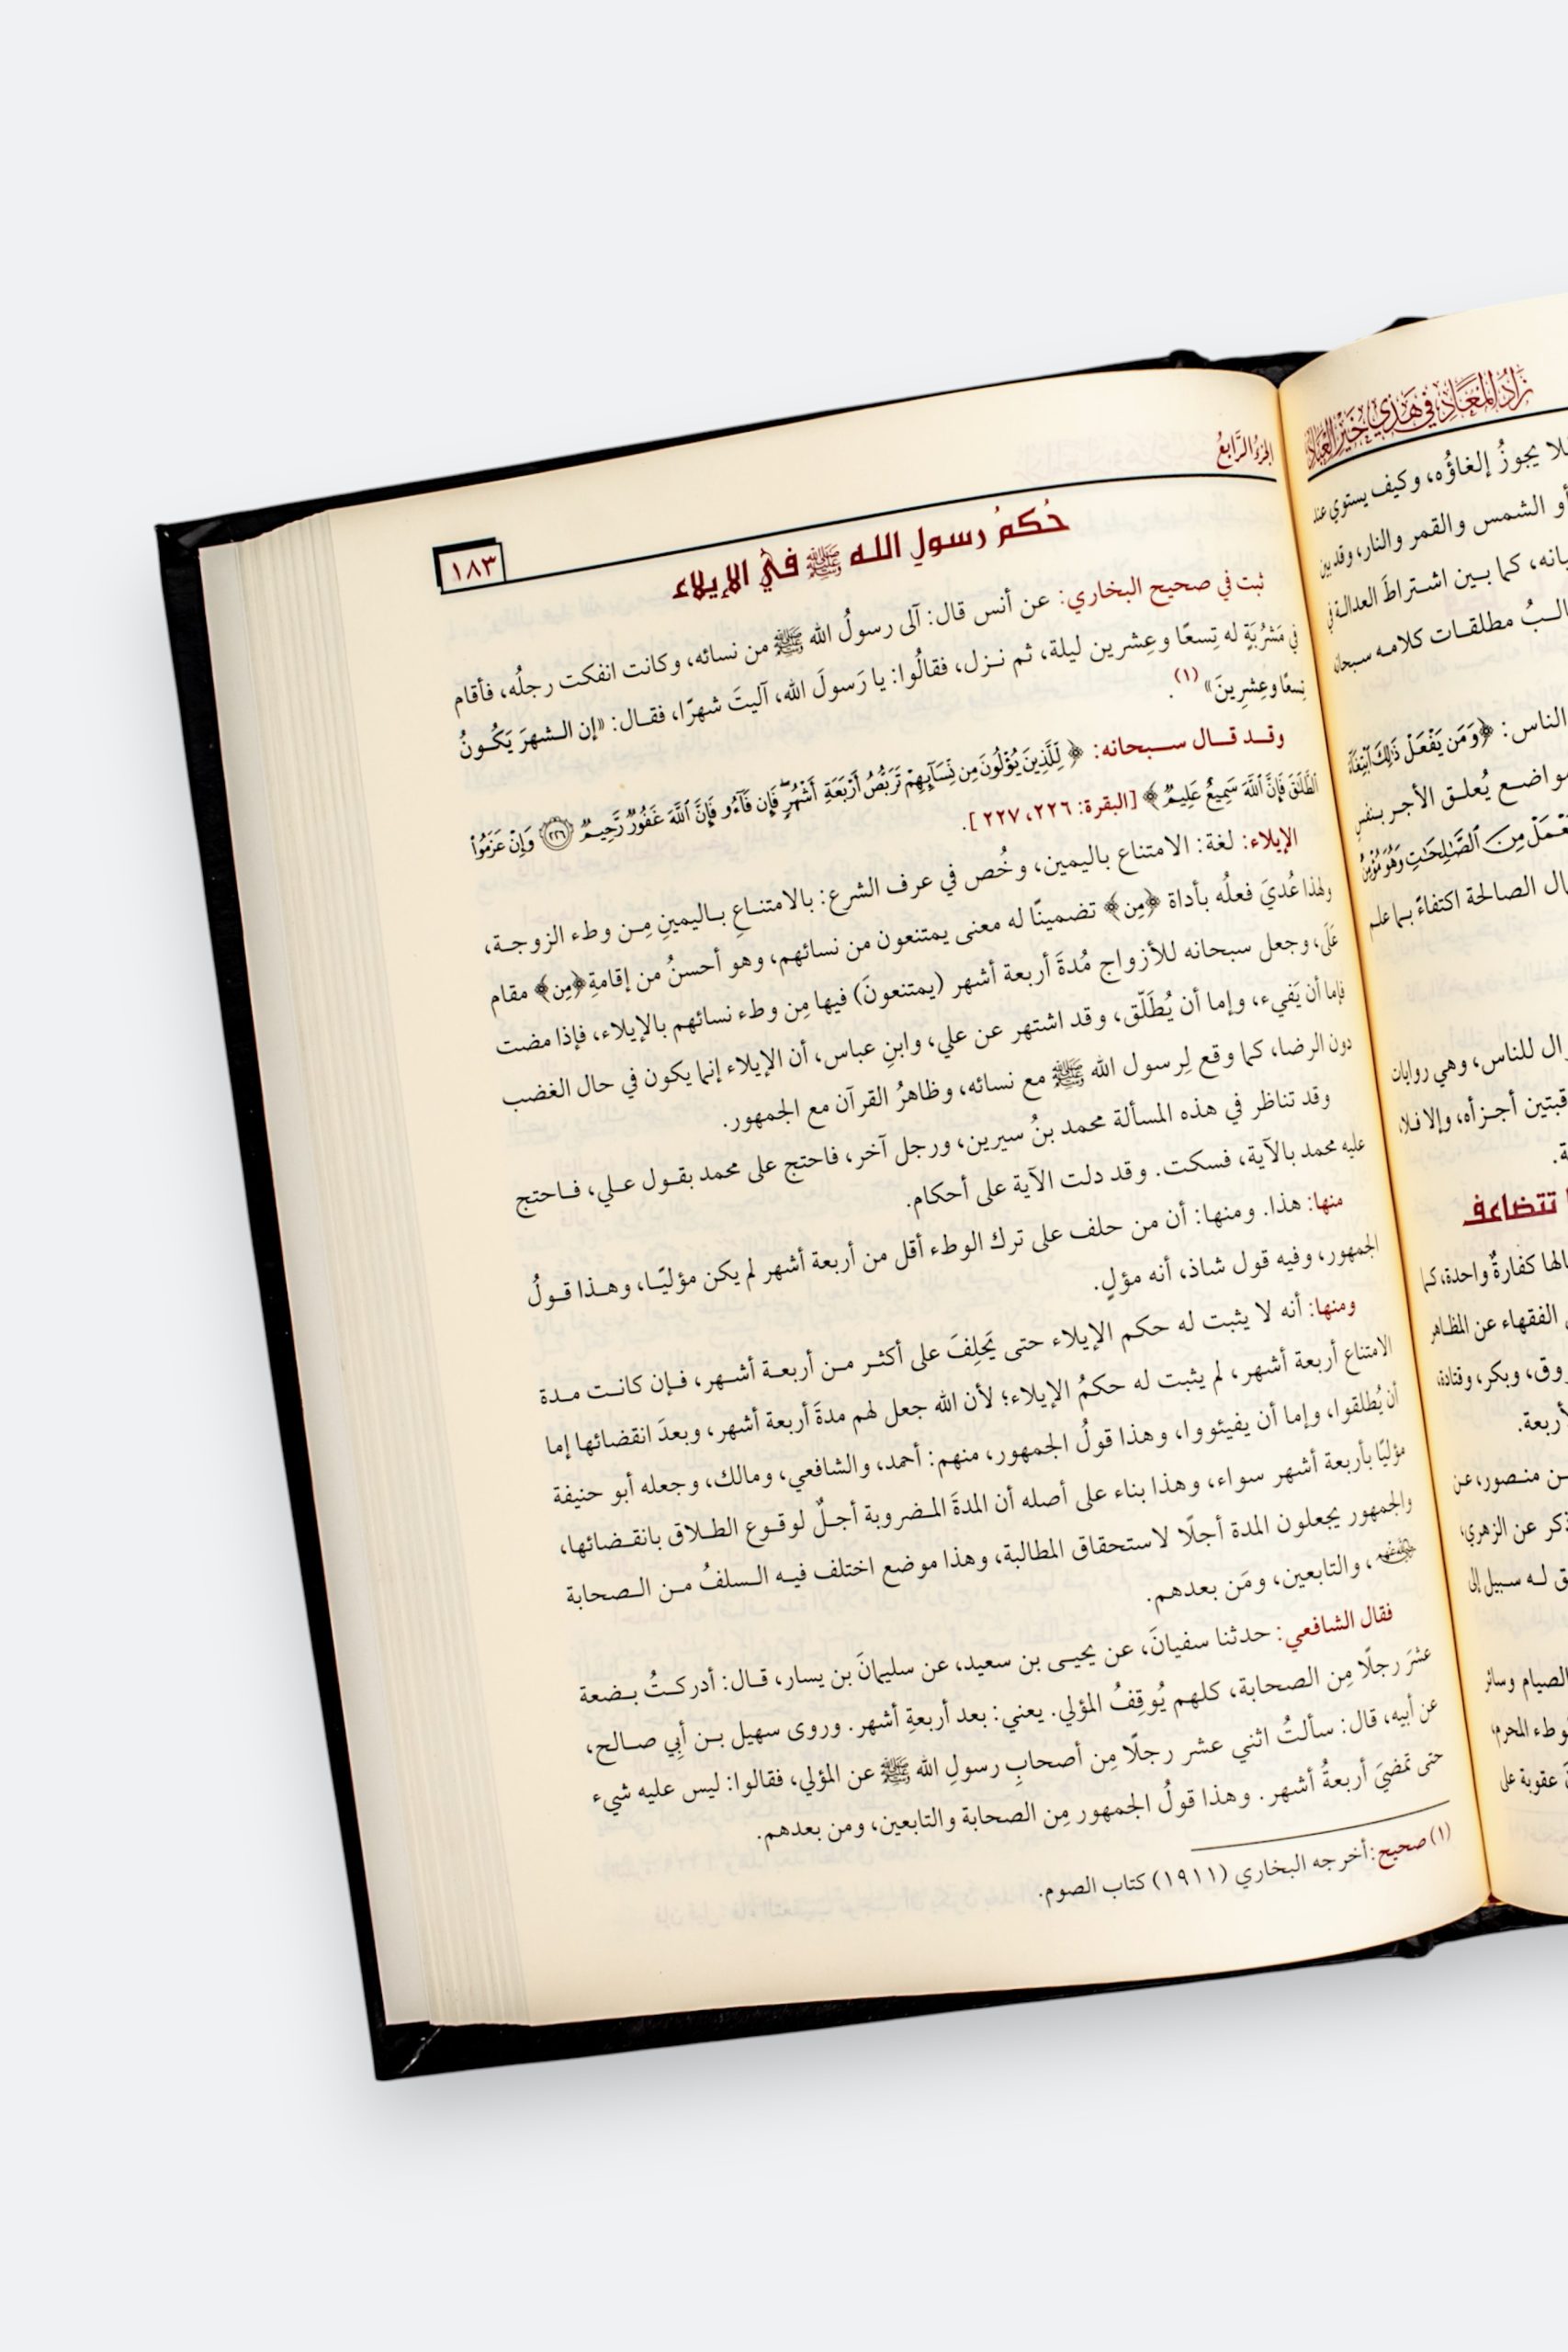 زَادُ المَعَادِ فِي هَدْيِ خَيْرِ العِبَادِ
يجوزُ إلغاؤُه، وكيف يستوي عند
الشمس والقمر والنار، وقد بين
كما بـين اشـتراطَ العدالـة في
مطلقـات كلامـه سـبحانه
الناس: ﴿وَمَن يَفْعَلْ ذَٰلِكَ ٱبْتِغَآءَ
يُعلـق الأجـر بـنفس
مِنَ ٱلصَّـٰلِحَـٰتِ وَهُوَ مُؤْمِنٌ
الصالحة اكتفاءً بـما علـم
للناس، وهي روايات
أجـزأه، وإلا فـلا،
تتضاعف
كفارةٌ واحدة، كـما
الفقهاء عن المظـاهر
وبكر، وقتادة،
منـصور، عـن
عن الزهري،
لـه سـبيل إلى
الصيام وسائر
المحرم،
عقوبة على
الجزءُ الرَّابعُ
١٨٣
حُكمُ رسولِ اللـه ﷺ في الإيلاء
ثبت في صحيح البخاري: عن أنس قال: آلى رسولُ الله ﷺ من نسائه، وكانت انفكت رجلُه، فأقام
في مَشْرُبَةٍ له تِسعًا وعِشرين ليلة، ثم نـزل، فقالُوا: يا رَسولَ الله، آليتَ شهرًا، فقـال: «إن الـشهرَ يَكُـونُ
تِسعًا وعِشرِينَ» (١).
وقـد قـال سـبحانه: ﴿لِّلَّذِينَ يُؤْلُونَ مِن نِّسَآئِهِمْ تَرَبُّصُ أَرْبَعَةِ أَشْهُرٍ ۖ فَإِن فَآءُو فَإِنَّ ٱللَّهَ غَفُورٌ رَّحِيمٌ ﴿٢٢٦﴾ وَإِنْ عَزَمُوا۟
ٱلطَّلَـٰقَ فَإِنَّ ٱللَّهَ سَمِيعٌ عَلِيمٌ﴾ [البقرة: ٢٢٦، ٢٢٧].
الإيلاء: لغة: الامتناع باليمين، وخُص في عرف الشرع: بالامتنـاعِ بـاليمينِ مِـن وطء الزوجـة،
ولهذا عُديَ فعلُه بأداة ﴿مِن﴾ تضمينًا له معنى يمتنعون من نسائهم، وهو أحسنُ من إقامةِ ﴿مِن﴾ مقام
عَلَى، وجعل سبحانه للأزواج مُدةَ أربعة أشهر (يمتنعونَ) فيها مِن وطء نسائهم بالإيلاء، فإذا مضت
فإما أن يَفيء، وإما أن يُطَلّق، وقد اشتهر عن علي، وابنِ عباس، أن الإيلاء إنما يكون في حال الغضب
دون الرضا، كما وقع لِرسول الله ﷺ مع نسائه، وظاهرُ القرآن مع الجمهور.
وقد تناظر في هذه المسألة محمد بنُ سيرين، ورجل آخر، فاحتج على محمد بقـول عـلي، فـاحتج
عليه محمد بالآية، فسكت. وقد دلت الآية على أحكام.
منها: هذا. ومنها: أن من حلف على ترك الوطء أقل من أربعة أشهر لم يكن مؤليًـا، وهـذا قـولُ
الجمهور، وفيه قول شاذ، أنه مؤلٍ.
ومنها: أنه لا يثبت له حكم الإيلاء حتى يَحلِفَ على أكثـر مـن أربعـة أشـهر، فـإن كانـت مـدة
الامتناع أربعة أشهر، لم يثبت له حكمُ الإيلاء؛ لأن الله جعل لهم مدةَ أربعة أشهر، وبعدَ انقضائها إما
أن يُطلقوا، وإما أن يفيئووا، وهذا قولُ الجمهور، منهم: أحمد، والشافعي، ومالك، وجعله أبو حنيفة
مؤليًا بأربعة أشهر سواء، وهذا بناء على أصله أن المدةَ المـضروبة أجـلٌ لوقـوع الطـلاق بانقـضائها،
والجمهور يجعلون المدة أجلًا لاستحقاق المطالبة، وهذا موضع اختلف فيـه الـسلفُ مـن الـصحابة
، والتابعين، ومَن بعدهم.
فقال الشافعي: حدثنا سفيانَ، عن يحيـى بن سعيد، عن سليمانَ بن يسار، قـال: أدركـتُ بـضعة
عشرَ رجلًا مِن الصحابة، كلهم يُوقِفُ المؤلي. يعني: بعد أربعةِ أشهر. وروى سهيل بـن أبي صـالح،
عن أبيه، قال: سألتُ اثني عشر رجلًا مِن أصحابِ رسولِ الله ﷺ عن المؤلي، فقالوا: ليس عليه شيء
حتى تمضيَ أربعةُ أشهر. وهذا قولُ الجمهور مِن الصحابة والتابعين، ومن بعدهم.
(١) صحيح: أخرجه البخاري (١٩١١) كتاب الصوم.